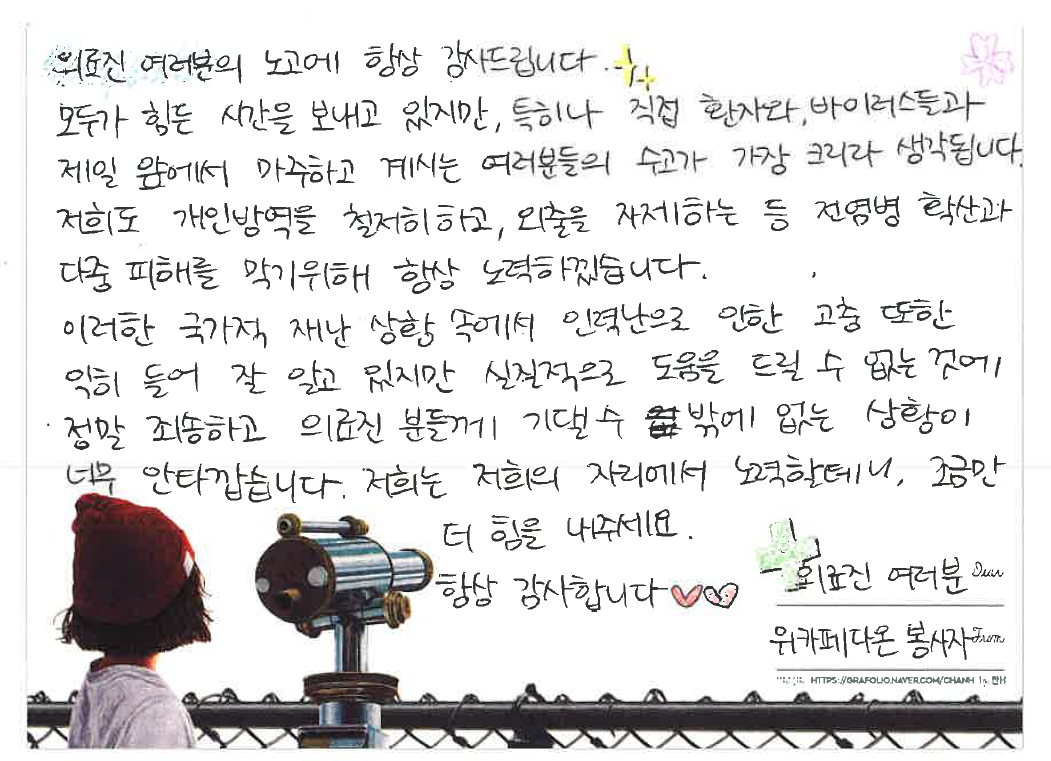 의료진 여러분의 노고에 항상 감사드립니다.
모두가 힘든 시간을 보내고 있지만, 특히나 직접 환자와, 바이러스들과
제일 앞에서 마주하고 계시는 여러분들의 수고가 가장 크리라 생각됩니다.
저희도 개인방역을 철저히하고, 외출을 자제하는 등 전염병 확산과
다중 피해를 막기위해 항상 노력하겠습니다.
이러한 국가적 재난 상황 속에서 인력난으로 인한 고충 또한
익히 들어 잘 알고 있지만 실질적으로 도움을 드릴 수 없는 것에
정말 죄송하고 의료진 분들께 기댈 수 밖에 없는 상황이
너무 안타깝습니다. 저희는 저희의 자리에서 노력할테니, 조금만
더 힘을 내주세요.
항상 감사합니다
의료진 여러분 Dear
위카페다온 봉사자 From
HTTPS://GRAFOLIO.NAVER.COM/CHANH